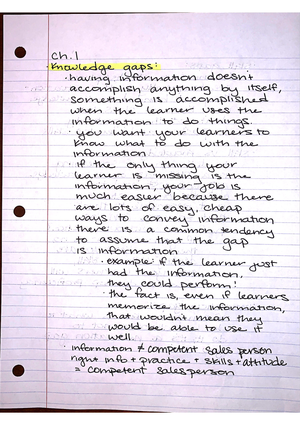 Ch. 1
· Knowledge gaps:
· having information doesn't
accomplish anything by itself,
something is accomplished
when the learner uses the
information to do things.
· you want your learners to
know what to do with the
information
· if the only thing your
learner is missing is the
information, your job is
much easier because there
are lots of easy, cheap
ways to convey information
· there is a common tendency
to assume that the gap
is information
· example: if the learner just
had the information,
they could perform!
· the fact is, even if learners
memorize the information,
that wouldn't mean they
would be able to use it
well.
· information ≠ competent sales person
right info + practice + skills + attitude
= competent salesperson